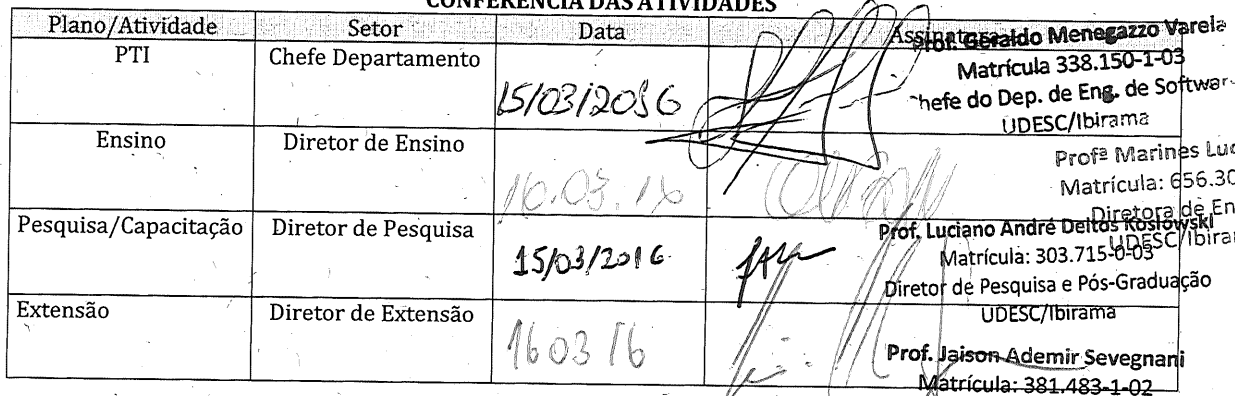 CONFERÊNCIA DAS ATIVIDADES
Plano/Atividade Setor Data Assinatura
Prof. Geraldo Menegazzo Varela
Matrícula 338.150-1-03
Chefe do Dep. de Eng. de Softwar
UDESC/Ibirama
PTI Chefe Departamento 15/03/2016
Ensino Diretor de Ensino 16.03.16
Profª Marines Luc
Matrícula: 656.30
Diretora de En
UDESC/Ibirar
Pesquisa/Capacitação Diretor de Pesquisa 15/03/2016
Prof. Luciano André Deitos Koslowski
Matrícula: 303.715-0-03
Diretor de Pesquisa e Pós-Graduação
UDESC/Ibirama
Extensão Diretor de Extensão 16 03 16
Prof. Jaison Ademir Sevegnani
Matrícula: 381.483-1-02